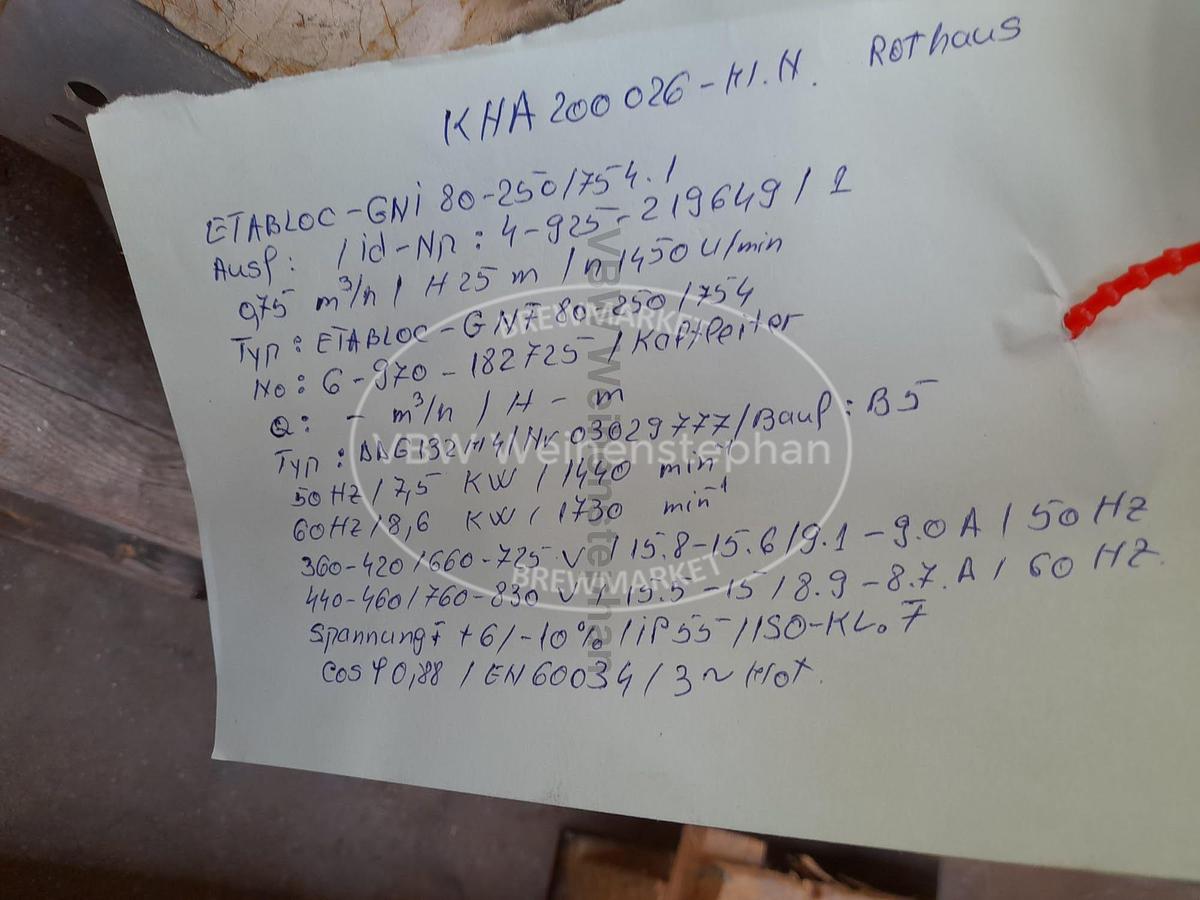 KHA 200 026 - Kl. H. Rothaus
ETABLOC - GNi 80-250/754.1
Ausf: / id-Nr: 4-925-219649 / 1
0,75 m³/h / H 25 m / n 1450 U/min
Typ: ETABLOC - GNF 80-250/754
No: 6-970-182725 / Kaltleiter
Q: - m³/h / H - m
Typ: 132M4 / Nr 03029777 / Bauf: B5
50 Hz / 7,5 KW / 1440 min⁻¹
60 Hz / 8,6 KW / 1730 min⁻¹
360-420/660-725 V / 15.8-15.6/9.1-9.0 A / 50 Hz
440-460/760-830 V / 15.5-15/8.9-8.7 A / 60 Hz
Spannung ± +6/-10% / iP 55 / ISO-KL. F
Cos φ 0,88 / EN 60034 / 3 ~ Mot.
BREWMARKET
VBW Weihenstephan
BREWMARKET
VBW Weihenstephan